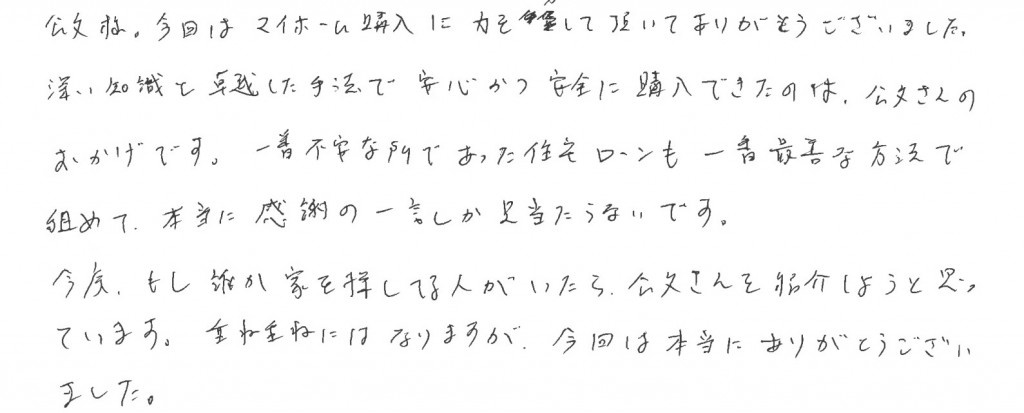 公文様。今回はマイホーム購入に力を貸して頂いてありがとうございました。
深い知識と卓越した手法で安心かつ安全に購入できたのは、公文さんの
おかげです。一番不安な所であった住宅ローンも一番最善な方法で
組めて、本当に感謝の一言しか見当たらないです。
今度、もし誰か家を探してる人がいたら、公文さんを紹介しようと思っ
ています。重ね重ねにはなりますが、今回は本当にありがとうござい
ました。